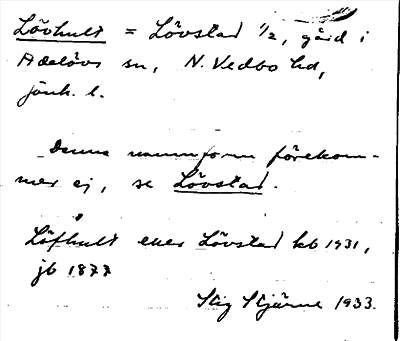 Lövhult = Lövstad 1/2, gård i
Adelövs sn, N. Vedbo hd,
jönk. l.
Denna namnform förekom-
mer ej, se Lövstad.
Löfhult eller Lövstad kb 1931,
jb 1877
Stig Stjärne 1933.